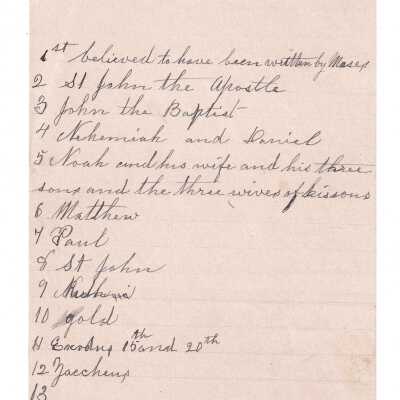 1st believed to have been written by Moses
2 St John the Apostle
3 John the Baptist
4 Nehemiah and Daniel
5 Noah and his wife and his three
sons and the three wives of his sons
6 Matthew
7 Paul
8 St John
9
10 gold
11 Exodus 15th and 20th
12 Zaccheus
13